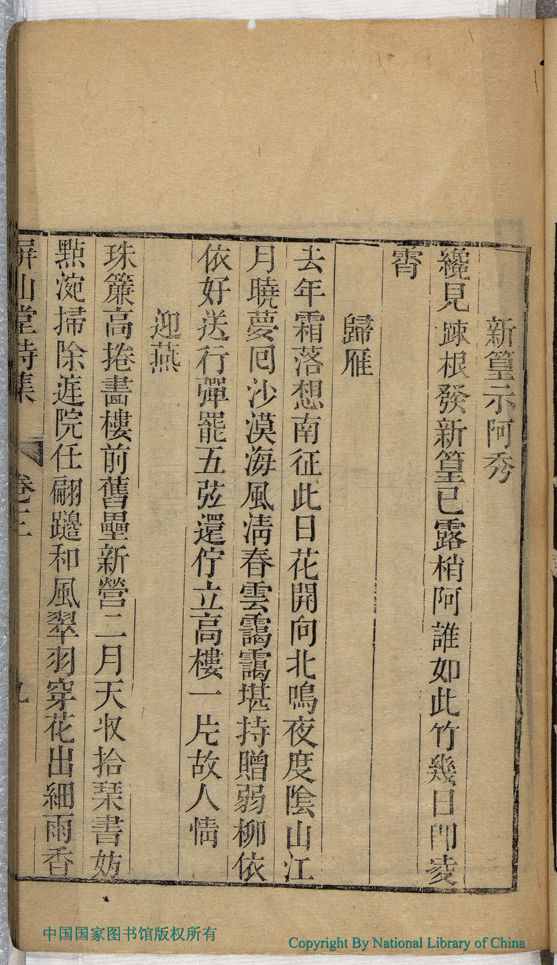 新篁示阿秀
纔見疎根發新篁已露梢阿誰如此竹幾日即凌
霄
歸雁
去年霜落想南征此日花開向北鳴夜度陰山江
月曉夢回沙漠海風清春雲靄靄堪持贈弱柳依
依好送行彈罷五弦還佇立高樓一片故人情
迎燕
珠簾高捲畵樓前舊壘新營二月天収拾琹書妨
點涴掃除庭院任翩躚和風翠羽穿花出細雨香
屏山堂詩集 卷三 九
中国国家图书馆版权所有
Copyright By National Library of China